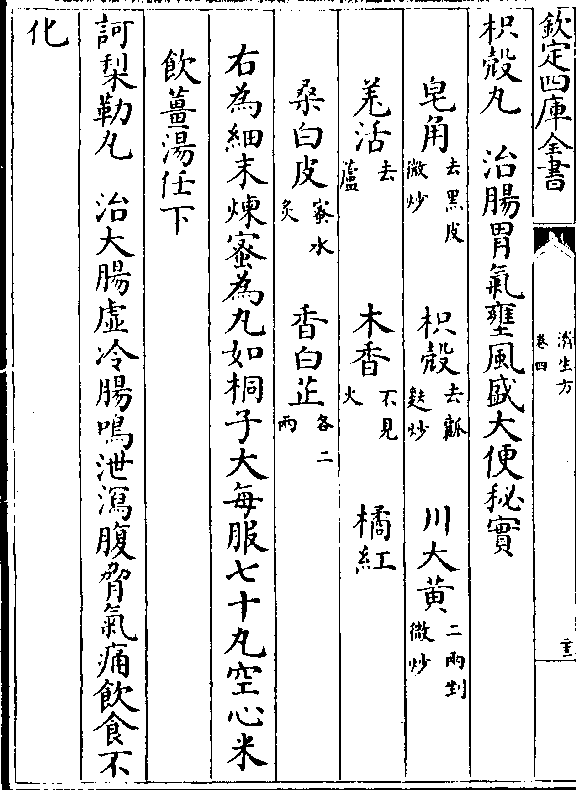 欽定四庫全書
濟生方
卷四
枳殼丸　治腸胃氣壅風盛大便秘實
皂角去黑皮微炒　枳殼去瓤麩炒　川大黃二兩剉微炒
羗活去蘆　木香不見火　橘紅
桑白皮蜜水炙　香白芷各二兩
右為細末煉蜜為丸如桐子大每服七十丸空心米
飲薑湯任下
訶梨勒丸　治大腸虛冷腸鳴泄瀉腹脅氣痛飲食不
化